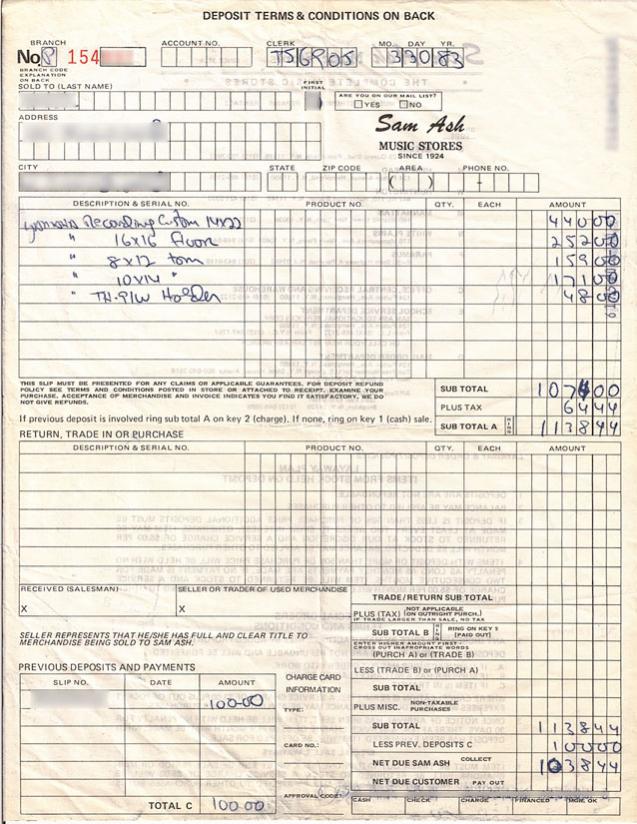 DEPOSIT TERMS & CONDITIONS ON BACK
BRANCH ACCOUNT NO. CLERK MO. DAY YR.
No P 154 TSGR05 3 30 83
BRANCH CODE
EXPLANATION
ON BACK
SOLD TO (LAST NAME) FIRST INITIAL ARE YOU ON OUR MAIL LIST?
YES NO
ADDRESS
Sam Ash
MUSIC STORES
SINCE 1924
CITY STATE ZIP CODE ( AREA ) PHONE NO.
DESCRIPTION & SERIAL NO. PRODUCT NO. QTY. EACH AMOUNT
Yamaha Recording Custom 14x22 440 00
" 16x16 floor 252 00
" 8x12 tom 159 00
" 10x14 " 171 00
" TH-91W Holder 48 00
THIS SLIP MUST BE PRESENTED FOR ANY CLAIMS OR APPLICABLE GUARANTEES, FOR DEPOSIT REFUND
POLICY SEE TERMS AND CONDITIONS POSTED IN STORE OR ATTACHED TO RECEIPT. EXAMINE YOUR
PURCHASE, ACCEPTANCE OF MERCHANDISE AND INVOICE INDICATES YOU FIND IT SATISFACTORY. WE DO
NOT GIVE REFUNDS.
SUB TOTAL 1074 00
PLUS TAX 64 44
If previous deposit is involved ring sub total A on key 2 (charge). If none, ring on key 1 (cash) sale.
SUB TOTAL A RING 1138 44
RETURN, TRADE IN OR PURCHASE
DESCRIPTION & SERIAL NO. PRODUCT NO. QTY. EACH AMOUNT
RECEIVED (SALESMAN) SELLER OR TRADER OF USED MERCHANDISE
X X
TRADE/RETURN SUB TOTAL
PLUS (TAX) (NOT APPLICABLE ON OUTRIGHT PURCH.)
IF TRADE LARGER THAN SALE, NO TAX
SUB TOTAL B RING RING ON KEY 5 (PAID OUT)
SELLER REPRESENTS THAT HE/SHE HAS FULL AND CLEAR TITLE TO
MERCHANDISE BEING SOLD TO SAM ASH.
ENTER HIGHER AMOUNT FIRST -
CROSS OUT INAPPROPRIATE WORDS
(PURCH A) or (TRADE B)
PREVIOUS DEPOSITS AND PAYMENTS
LESS (TRADE B) or (PURCH A)
SLIP NO. DATE AMOUNT
100.00
CHARGE CARD
INFORMATION
TYPE:
CARD NO.:
APPROVAL CODE:
SUB TOTAL
PLUS MISC. NON-TAXABLE PURCHASES
SUB TOTAL 1138 44
LESS PREV. DEPOSITS C 100 00
NET DUE SAM ASH COLLECT 1038 44
NET DUE CUSTOMER PAY OUT
TOTAL C 100.00
CASH CHECK CHARGE FINANCED MGR. OK